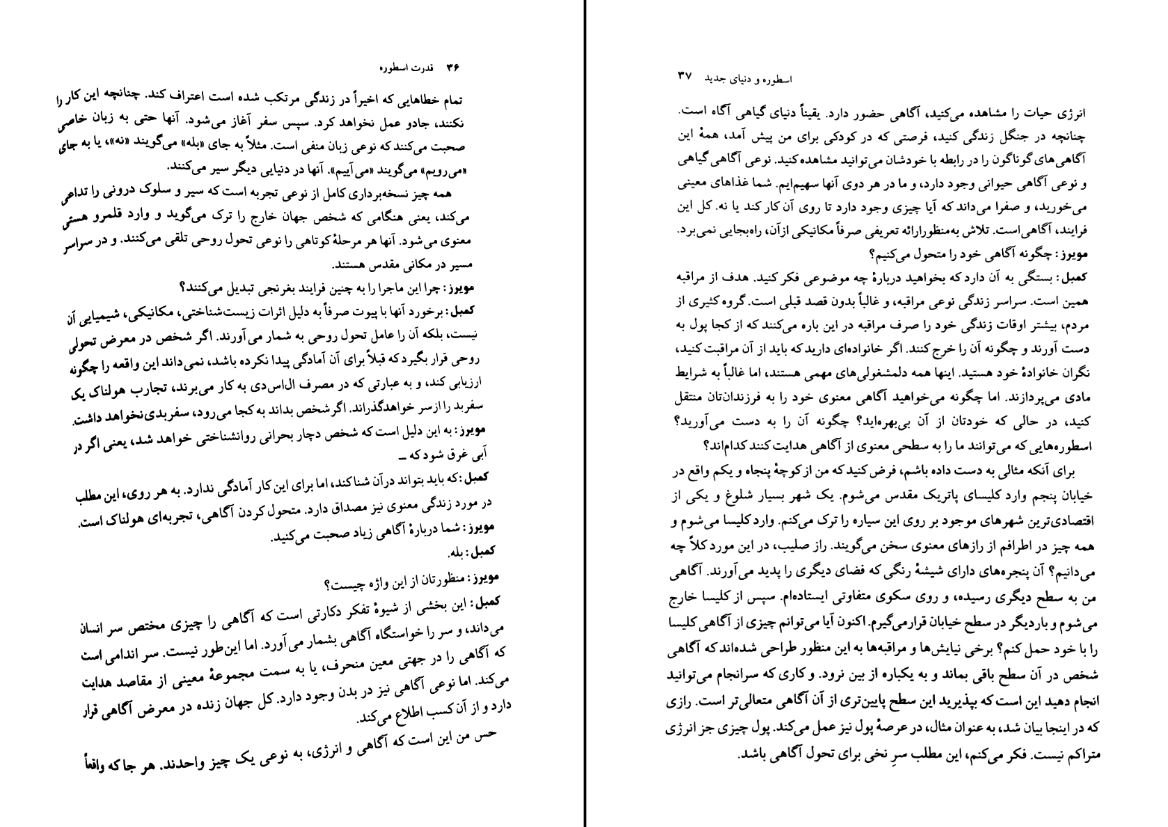 ۳۶ قدرت اسطوره
تمام خطاهایی که اخیراً در زندگی مرتکب شده است اعتراف کند. چنانچه این کار را
نکنند، جادو عمل نخواهد کرد. سپس سفر آغاز می‌شود. آنها حتی به زبان خاصی
صحبت می‌کنند که نوعی زبان منفی است. مثلاً به جای «بله» می‌گویند «نه»، یا به جای
«می‌رویم» می‌گویند «می‌آییم». آنها در دنیایی دیگر سیر می‌کنند.
همه چیز نسخه‌برداری کامل از نوعی تجربه است که سیر و سلوک درونی را تداعی
می‌کند، یعنی هنگامی که شخص جهان خارج را ترک می‌گوید و وارد قلمرو هستی
معنوی می‌شود. آنها هر مرحلهٔ کوتاهی را نوعی تحول روحی تلقی می‌کنند. و در سراسر
مسیر در مکانی مقدس هستند.
مویرز: چرا این ماجرا را به چنین فرایند بغرنجی تبدیل می‌کنند؟
کمبل: برخورد آنها با پیوت صرفاً به دلیل اثرات زیست‌شناختی، مکانیکی، شیمیایی آن
نیست، بلکه آن را عامل تحول روحی به شمار می‌آورند. اگر شخص در معرض تحولی
روحی قرار بگیرد که قبلاً برای آن آمادگی پیدا نکرده باشد، نمی‌داند این واقعه را چگونه
ارزیابی کند، و به عبارتی که در مصرف ال‌اس‌دی به کار می‌برند، تجارب هولناک یک
سفربد را ازسر خواهدگذراند. اگر شخص بداند به کجا می‌رود، سفربدی‌نخواهد داشت.
مویرز: به این دلیل است که شخص دچار بحرانی روانشناختی خواهد شد، یعنی اگر در
آبی غرق شود که ــ
کمبل: که باید بتواند درآن شناکند، اما برای این کار آمادگی ندارد. به هر روی، این مطلب
در مورد زندگی معنوی نیز مصداق دارد. متحول کردن آگاهی، تجربه‌ای هولناک است.
مویرز: شما دربارهٔ آگاهی زیاد صحبت می‌کنید.
کمبل: بله.
مویرز: منظورتان از این واژه چیست؟
کمبل: این بخشی از شیوهٔ تفکر دکارتی است که آگاهی را چیزی مختص سر انسان
می‌داند، و سر را خواستگاه آگاهی بشمار می‌آورد. اما این‌طور نیست. سر اندامی است
که آگاهی را در جهتی معین منحرف، یا به سمت مجموعهٔ معینی از مقاصد هدایت
می‌کند. اما نوعی آگاهی نیز در بدن وجود دارد. کل جهان زنده در معرض آگاهی قرار
دارد و از آن کسب اطلاع می‌کند.
حس من این است که آگاهی و انرژی، به نوعی یک چیز واحدند. هر جا که واقعاً
اسطوره و دنیای جدید ۳۷
انرژی حیات را مشاهده می‌کنید، آگاهی حضور دارد. یقیناً دنیای گیاهی آگاه است.
چنانچه در جنگل زندگی کنید، فرصتی که در کودکی برای من پیش آمد، همهٔ این
آگاهی‌های گوناگون را در رابطه با خودشان می‌توانید مشاهده کنید. نوعی آگاهی گیاهی
و نوعی آگاهی حیوانی وجود دارد، و ما در هر دوی آنها سهیم‌ایم. شما غذاهای معینی
می‌خورید، و صفرا می‌داند که آیا چیزی وجود دارد تا روی آن کار کند یا نه. کل این
فرایند، آگاهی‌است. تلاش به‌منظورارائه تعریفی صرفاً مکانیکی ازآن، راه‌بجایی نمی‌برد.
مویرز: چگونه آگاهی خود را متحول می‌کنیم؟
کمبل: بستگی به آن دارد که بخواهید دربارهٔ چه موضوعی فکر کنید. هدف از مراقبه
همین است. سراسر زندگی نوعی مراقبه، و غالباً بدون قصد قبلی است. گروه کثیری از
مردم، بیشتر اوقات زندگی خود را صرف مراقبه در این باره می‌کنند که از کجا پول به
دست آورند و چگونه آن را خرج کنند. اگر خانواده‌ای دارید که باید از آن مراقبت کنید،
نگران خانوادهٔ خود هستید. اینها همه دلمشغولی‌های مهمی هستند، اما غالباً به شرایط
مادی می‌پردازند. اما چگونه می‌خواهید آگاهی معنوی خود را به فرزندان‌تان منتقل
کنید، در حالی که خودتان از آن بی‌بهره‌اید؟ چگونه آن را به دست می‌آورید؟
اسطوره‌هایی که می‌توانند ما را به سطحی معنوی از آگاهی هدایت کنند کدام‌اند؟
برای آنکه مثالی به دست داده باشم، فرض کنید که من از کوچهٔ پنجاه و یکم واقع در
خیابان پنجم وارد کلیسای پاتریک مقدس می‌شوم. یک شهر بسیار شلوغ و یکی از
اقتصادی‌ترین شهرهای موجود بر روی این سیاره را ترک می‌کنم. وارد کلیسا می‌شوم و
همه چیز در اطرافم از رازهای معنوی سخن می‌گویند. راز صلیب، در این مورد کلاً چه
می‌دانیم؟ آن پنجره‌های دارای شیشهٔ رنگی که فضای دیگری را پدید می‌آورند. آگاهی
من به سطح دیگری رسیده، و روی سکوی متفاوتی ایستاده‌ام. سپس از کلیسا خارج
می‌شوم و باردیگر در سطح خیابان قرارمی‌گیرم. اکنون آیا می‌توانم چیزی از آگاهی کلیسا
را با خود حمل کنم؟ برخی نیایش‌ها و مراقبه‌ها به این منظور طراحی شده‌اند که آگاهی
شخص در آن سطح باقی بماند و به یکباره از بین نرود. و کاری که سرانجام می‌توانید
انجام دهید این است که بپذیرید این سطح پایین‌تری از آن آگاهی متعالی‌تر است. رازی
که در اینجا بیان شد، به عنوان مثال، در عرصهٔ پول نیز عمل می‌کند. پول چیزی جز انرژی
متراکم نیست. فکر می‌کنم، این مطلب سرِ نخی برای تحول آگاهی باشد.